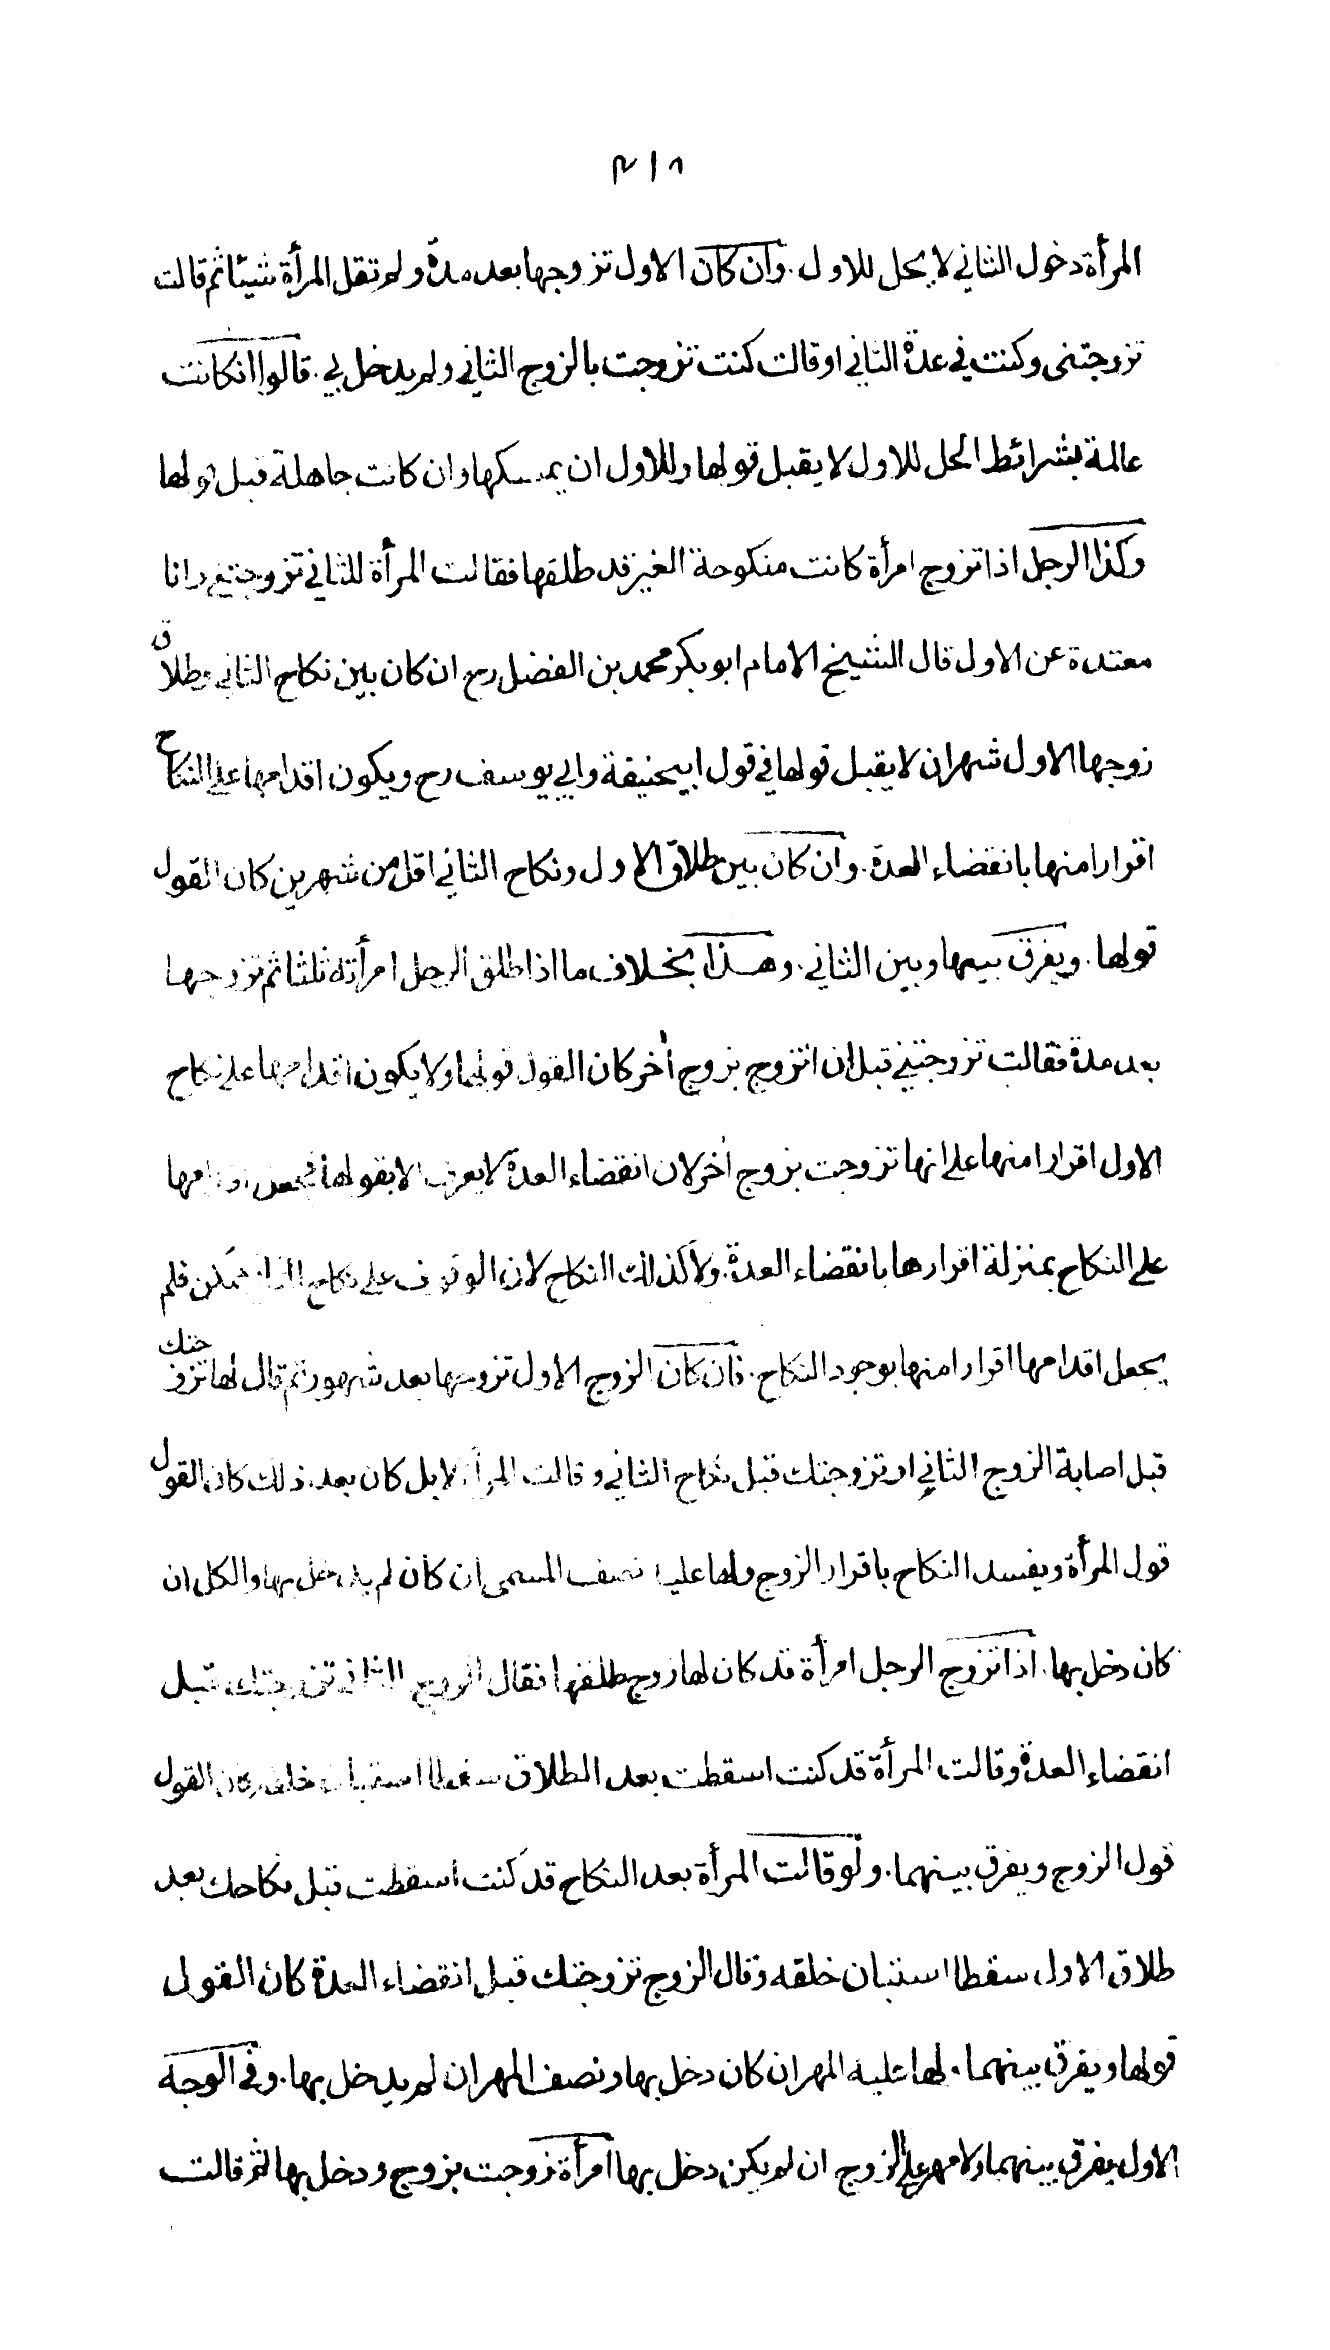 ٤١٨
المرأة دخول الثاني لا يحل للاول . وان كان الاول تزوجها بعد مدة ولم تقل المرأة شيئا ثم قالت
تزوجتنى وكنت في عدة الثاني او قالت كنت تزوجت بالزوج الثاني ولم يدخل بي . قالوا انكانت
عالمة بشرائط الحل للاول لا يقبل قولها وللاول ان يمسكها وان كانت جاهلة قبل قولها
وكذا الرجل اذا تزوج امرأة كانت منكوحة الغير قد طلقها فقالت المرأة للثاني تزوجتني وانا
معتدة عن الاول قال الشيخ الامام ابو بكر محمد بن الفضل رح ان كان بين نكاح الثاني وطلاق
زوجها الاول شهران لا يقبل قولها في قول ابيحنيفة وابي يوسف رح ويكون اقدامها على النكاح
اقرارا منها بانقضاء العدة . وان كان بين طلاق الاول ونكاح الثاني اقل من شهرين كان القول
قولها . ويفرق بينها وبين الثاني . وهذا بخلاف ما اذا طلق الرجل امرأته ثلثا ثم تزوجها
بعد مدة فقالت تزوجتني قبل ان اتزوج بزوج أخر كان القول قولها ولا يكون اقدامها على نكاح
الاول اقرارا منها على انها تزوجت بزوج أخر لان انقضاء العدة لا يعرف الا بقولها فيجعل اقدامها
على النكاح بمنزلة اقرارها بانقضاء العدة . ولا كذلك النكاح لان الوقوف على نكاح الثاني ممكن فلم
يجعل اقدامها اقرارا منها بوجود النكاح . فان كان الزوج الاول تزوجها بعد شهور ثم قال لها تزوجتك
قبل اصابة الزوج الثاني او تزوجتك قبل نكاح الثاني وقالت المرأة لا بل كان بعد ذلك كان القول
قول المرأة ويفسد النكاح باقرار الزوج ولها عليه نصف المسمى ان كان لم يدخل بها والكل ان
كان دخل بها . اذا تزوج الرجل امرأة قد كان لها زوج طلقها فقال الزوج الثاني تزوجتك قبل
انقضاء العدة وقالت المرأة قد كنت اسقطت بعد الطلاق سقطا استبان خلقه كان القول
قول الزوج ويفرق بينهما . ولو قالت المرأة بعد النكاح قد كنت اسقطت قبل نكاحك بعد
طلاق الاول سقطا استبان خلقه وقال الزوج تزوجتك قبل انقضاء العدة كان القول
قولها ويفرق بينهما . لها عليه المهر ان كان دخل بها ونصف المهر ان لم يدخل بها . وفي الوجه
الاول يفرق بينهما ولا مهر على الزوج ان لم يكن دخل بها امرأة زوجت بزوج ودخل بها ثم قالت